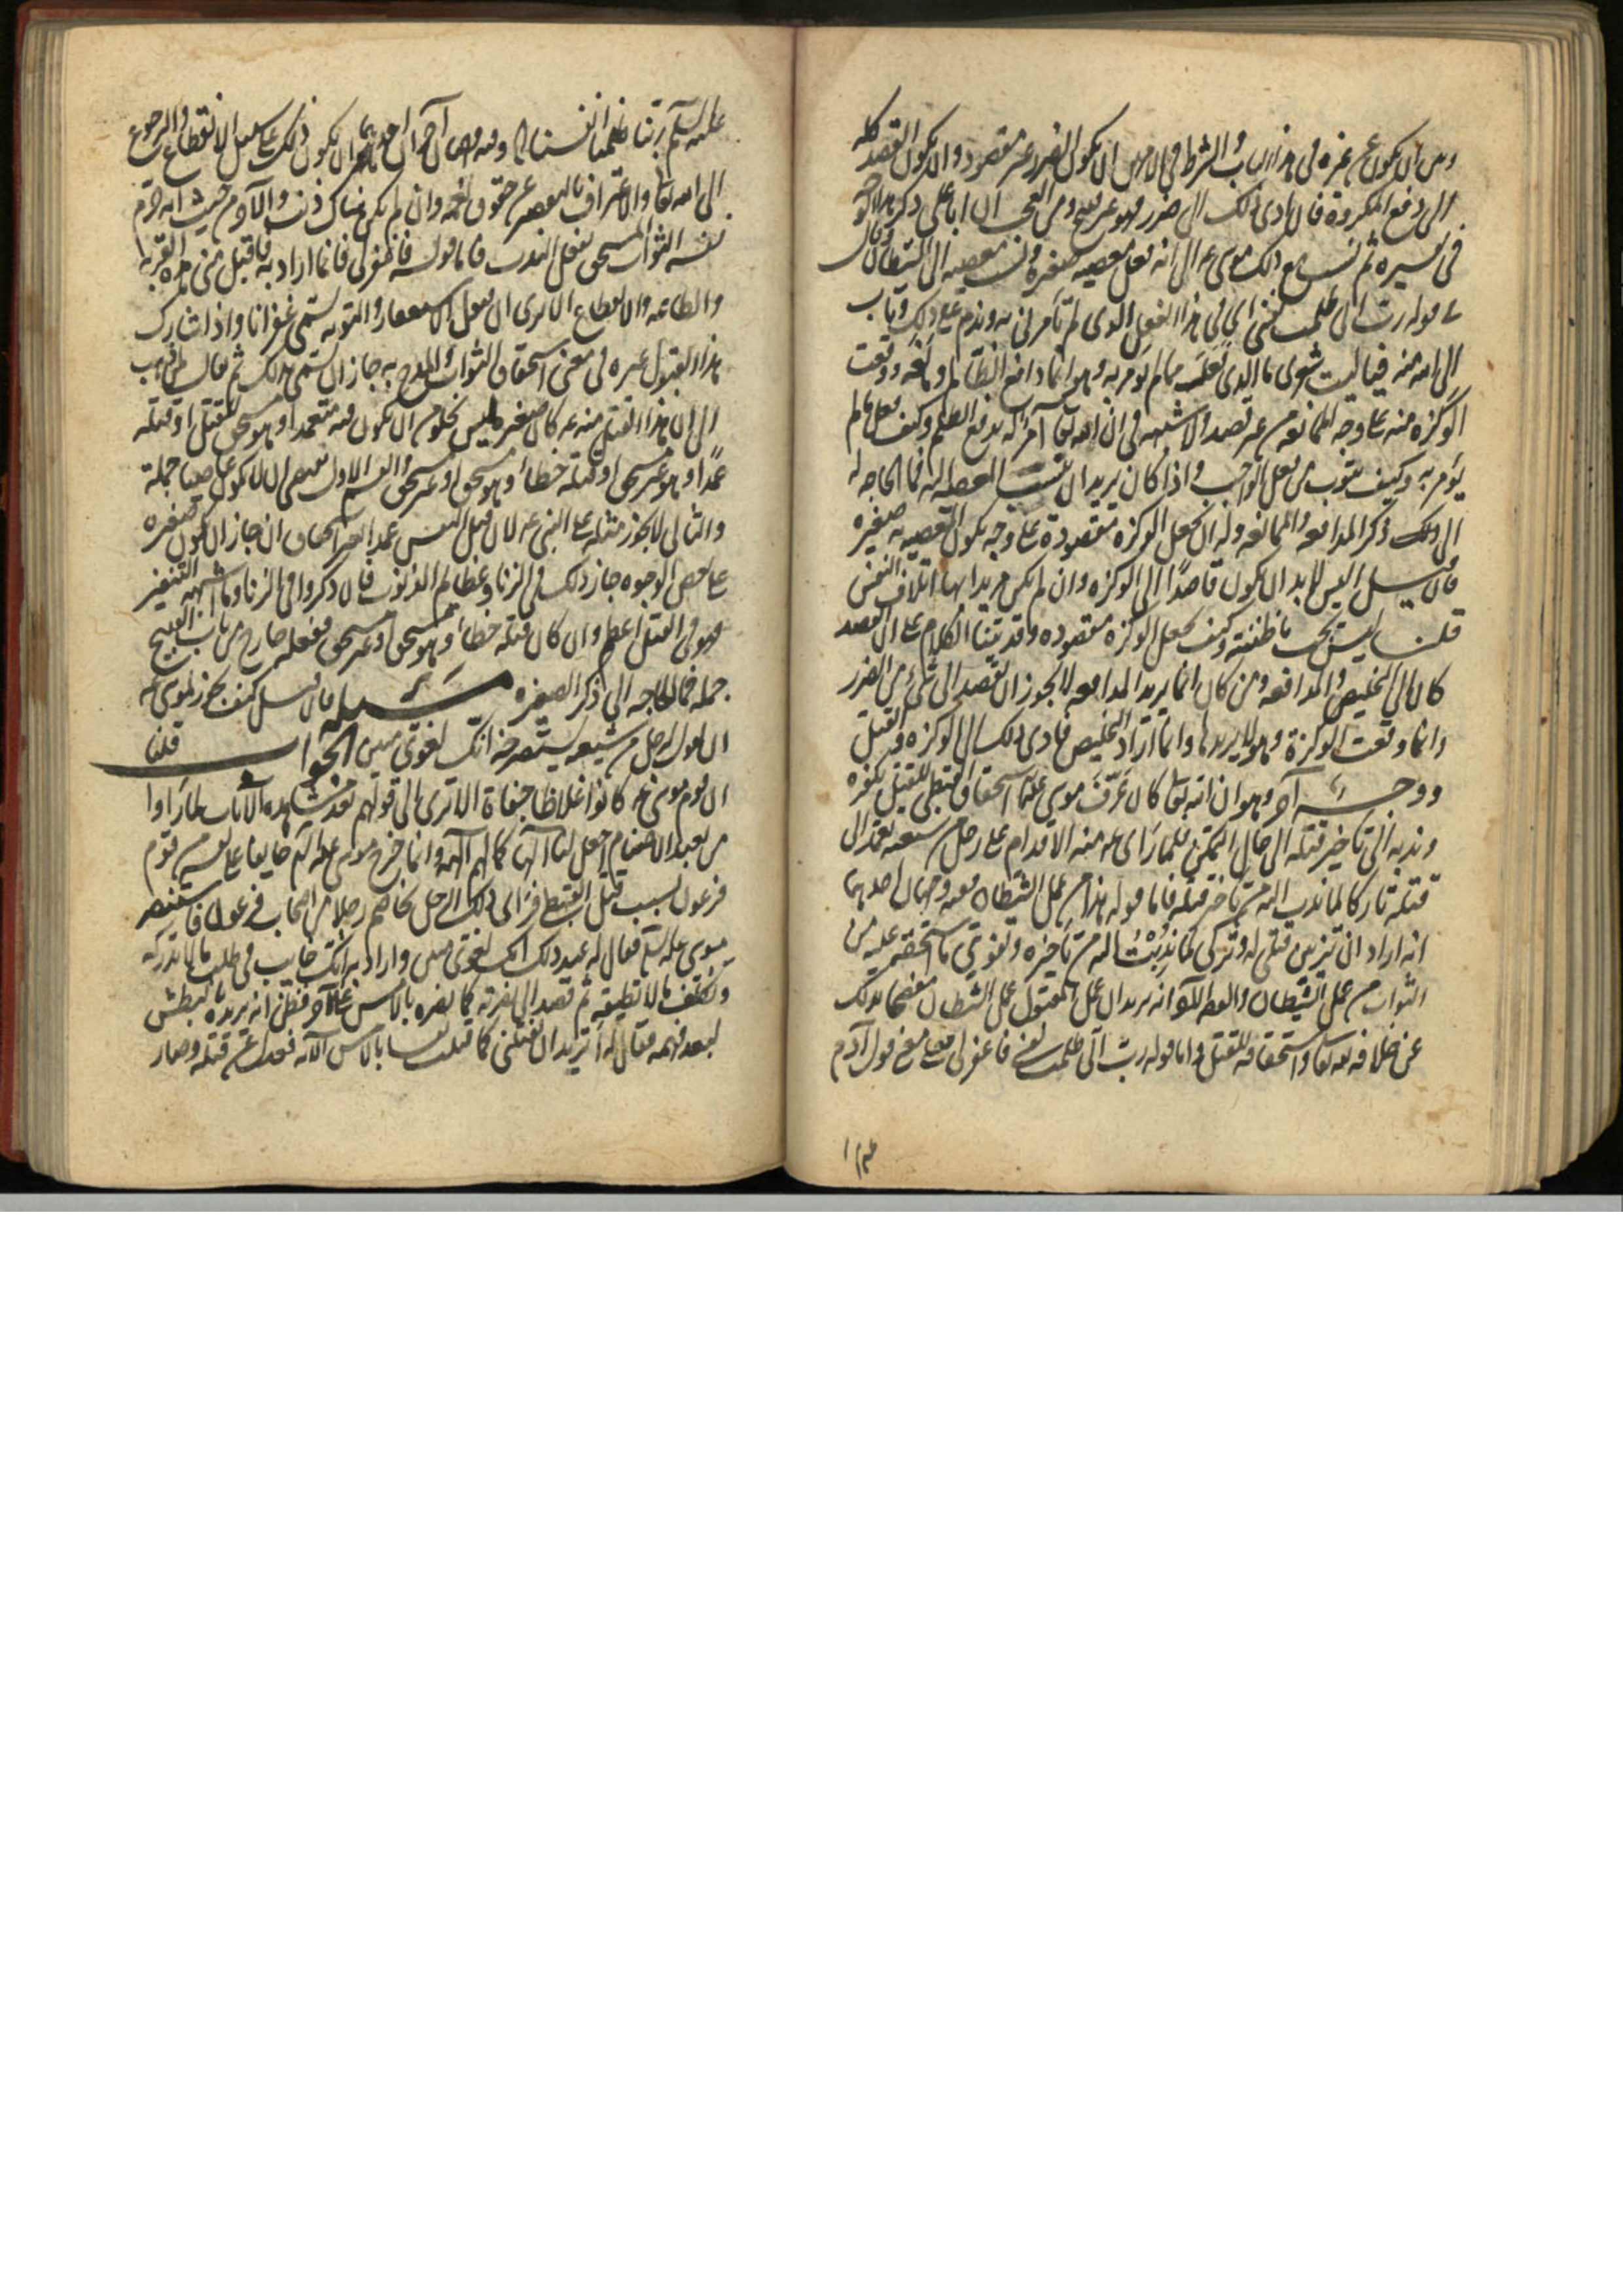 وبين ان يكون عن غيره في هذا الباب والشرط في الامرين ان يكون الضرر غير مقصود وان يكون القصد كله
الى دفع المكروه فان ادى ذلك الى ضرر فهو غير قبيح ومن العجب ان ابا علي ذكر هذا الوجه
في تفسيره ثم نسب مع ذلك موسى ع الى انه فعل معصية صغيرة ونسب معصيته الى الشيطان وقال
في قوله رب اني ظلمت نفسي اي في هذا الفعل الذي لم تأمرني به وندم على ذلك وتاب
الى الله منه فيا ليت شعري ما الذي فعل مما لم يؤمر به وهو انما دافع الظالم ومانعه ووقعت
الوكزة منه على وجه الممانعة من غير قصد ولا شبهة في ان الله تعالى امره بدفع الظلم وكيف فعل ما لم
يؤمر به وكيف يتوب من فعل الواجب واذا كان يريد ان ينسب المعصية اليه فما الحاجة له
الى ذلك ذكر المدافعة والممانعة وله ان يجعل الوكزة مقصودة على وجه يكون المعصية به صغيرة
فان قيل اليس لا بد ان يكون قاصدا الى الوكزة وان لم يكن مريدا بها اتلاف النفس
قلنا ليس يجب ما ظننته وكيف يجعل الوكزة مقصودة وقد بينا الكلام على ان القصد
كان الى التخليص والمدافعة ومن كان انما يريد المدافعة لا يجوز ان يقصد الى شيء من الضرر
وانما وقعت الوكزة وهو لا يريدها وانما اراد التخليص فادى ذلك الى الوكزة والقتل
ووجه آخر وهو ان الله تعالى كان عرف موسى عليه السلم استحقاق القبطي للقتل بكفره
وندبه الى تأخير قتله الى حال التمكن فلما رأى ع منه الاقدام على رجل من شيعته تعمد الى
قتله تاركا لما ندب اليه من تأخر قتله فاما قوله هذا من عمل الشيطان ففيه وجهان احدهما
انه اراد ان تزيين قتلي له وتركي لما ندبت اليه من تأخيره وتفويتي ما استحقه عليه من
الثواب من عمل الشيطان والوجه الآخر انه يريد ان عمل المقتول عمل الشيطان مفصحا بذلك
عن خلافه لله تعالى واستحقاقه للقتل واما قوله رب اني ظلمت نفسي فاغفر لي فعلى معنى قول آدم
عليه السلم ربنا ظلمنا انفسنا وفيه وجهان آخران احدهما ان يكون ذلك على سبيل الانقطاع والرجوع
الى الله تعالى والاعتراف بالتقصير عن حقوق نعمه وان لم يكن هناك ذنب والآخر من حيث انه حرم
نفسه الثواب المستحق بفعل الندب فاما قوله فاغفر لي فانما اراد به فاقبل مني هذه القربة
والطاعة والانقطاع الا ترى ان قبول الاستغفار والتوبة يسمى غفرانا واذا شارك
هذا القبول غيره في معنى استحقاق الثواب والمدح به جاز ان يسمى بذلك ثم يقال لمن ذهب
الى ان هذا القتل منه ع كان صغيرة ليس يخلو من ان يكون قتله متعمدا وهو مستحق للقتل او قتله
عمدا وهو غير مستحق او قتله خطأ وهو مستحق او غير مستحق والقسم الاول يقتضي ان لا يكون عاصيا جملة
والثاني لا يجوز مثله على النبي ع لان قتل النفس عمدا بغير استحقاق ان جاز ان يكون صغيرة
على بعض الوجوه جاز ذلك في الزنا وعظائم الذنوب فان ذكروا في الزنا وما اشبهه التنفير
فهو في القتل اعظم وان كان قتله خطأ وهو مستحق او غير مستحق ففعله خارج من باب القبيح
جملة فما الحاجة الى ذكر الصغيرة مسئلة فان قيل كيف يجوز لموسى ع
ان يقول لرجل من شيعته يستصرخه انك لغوي مبين الجواب قلنا
ان قوم موسى ع كانوا غلاظا جفاة الا ترى الى قولهم بعد مشاهدة الآيات لما رأوا
من يعبد الاصنام اجعل لنا الها كما لهم آلهة وانما خرج موسى عليه السلم خائفا على نفسه من قوم
فرعون بسبب قتل القبطي فرأى ذلك الرجل يخاصم رجلا من اصحاب فرعون فاستنصر
موسى عليه السلم فقال له عند ذلك انك لغوي مبين واراد به انك خائب في طلب ما لا تدركه
وتكلف ما لا تطيقه ثم قصد الى نصرته كما نصره بالامس على الآخر فظن انه يريده بالبطش
لبعد فهمه فقال له اتريد ان تقتلني كما قتلت نفسا بالامس الآية فعدل عن قتله وصار